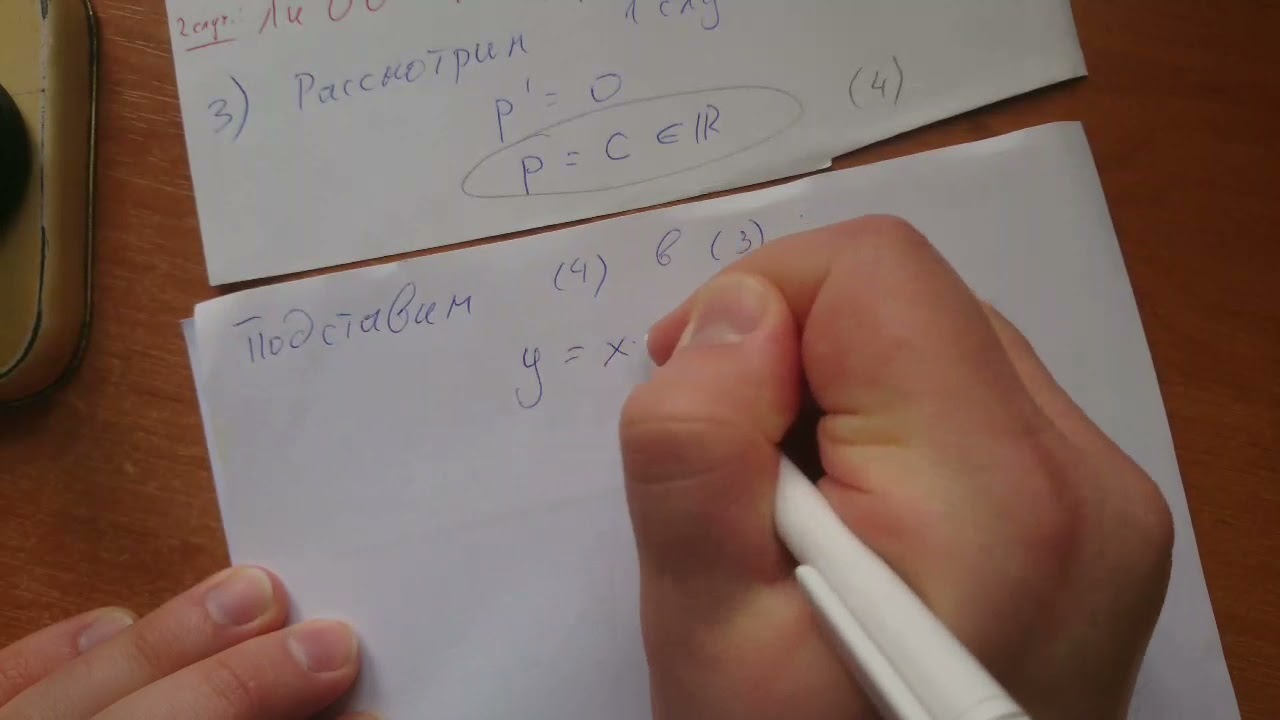 2 случ.:
3) Рассмотрим 1 слу
p' = 0
p = C ∈ ℝ (4)
Подставим (4) в (3)
y = x·